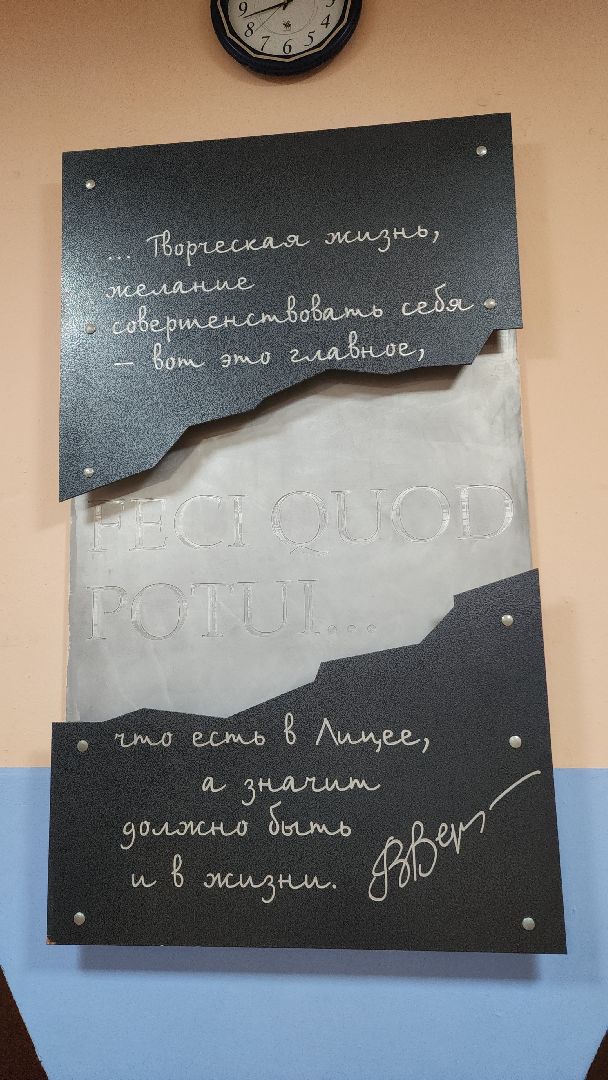 9
8
7
6
5
4
3
... Творческая жизнь,
желание
совершенствовать себя
— вот это главное,
FECI QUOD
POTUI...
что есть в Лицее,
а значит
должно быть
и в жизни.